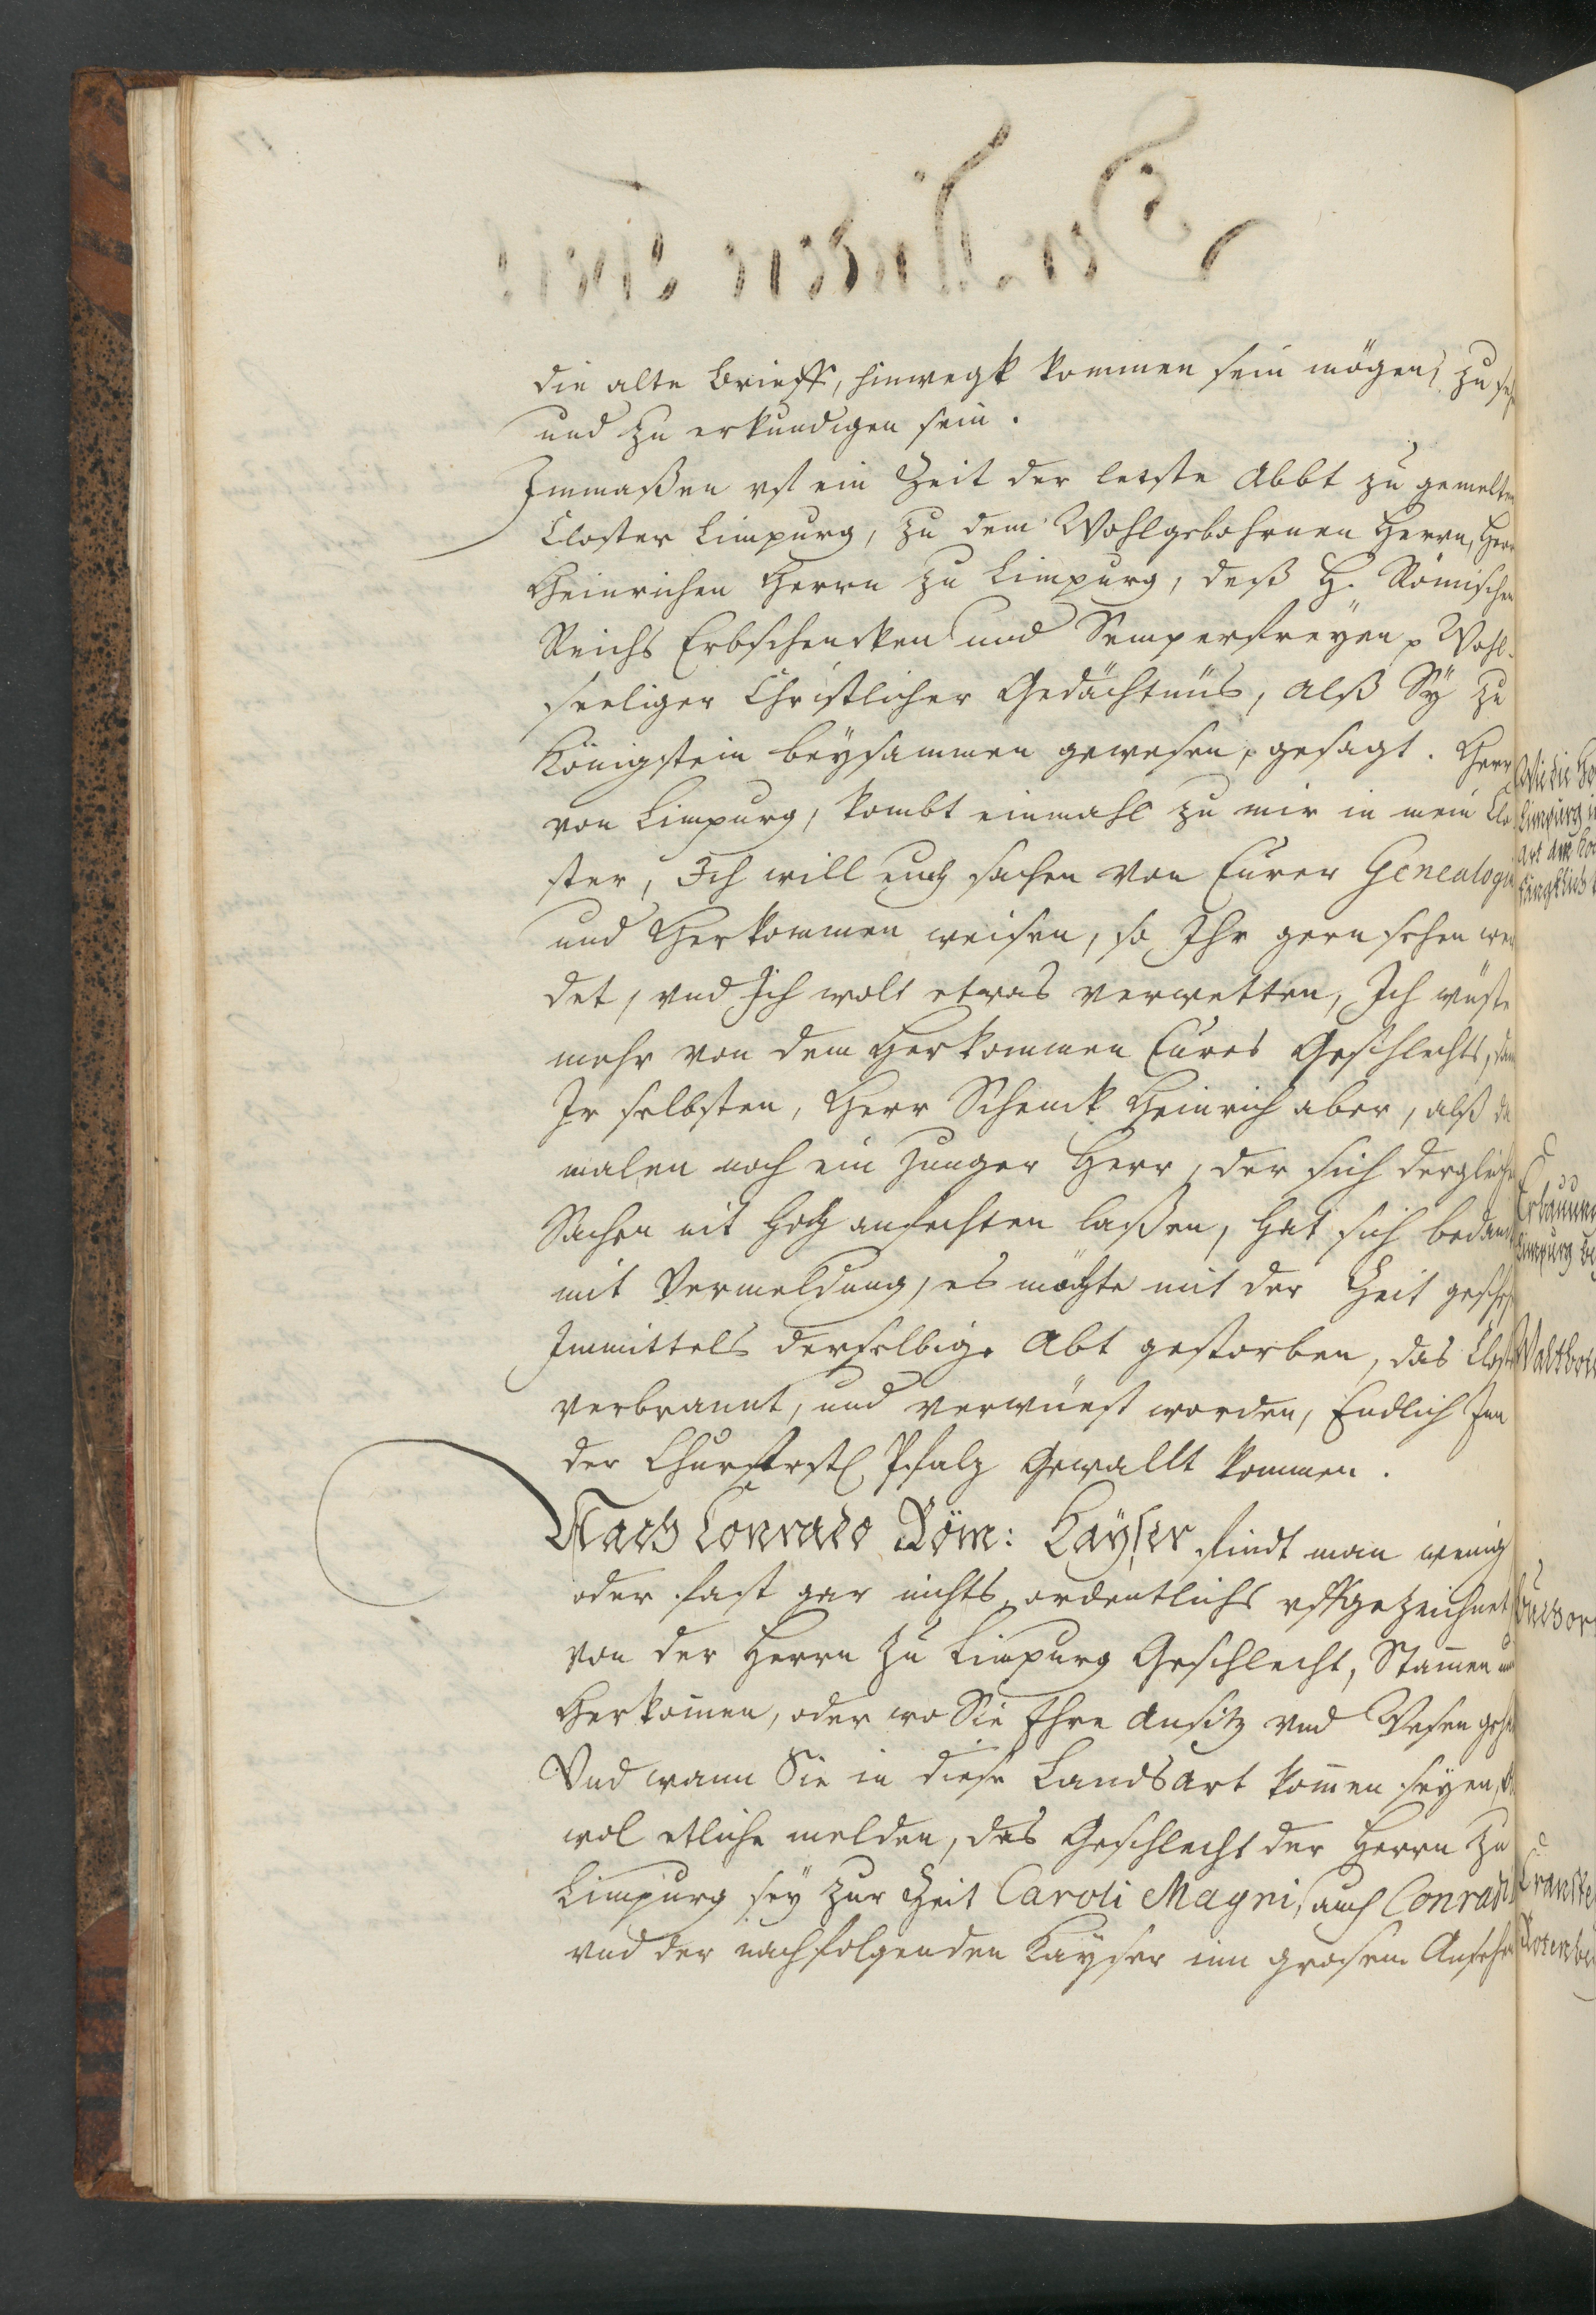 die alte Brieff, hinwegk kommen sein mögen, zu
und zu erkundigen sein.
Immaßen vf ein Zeit der letste Abbt zu gemelten
Closter Limpurg, zu dem Wohlgebohrnen Herrn, Herr
Heinrichen Herrn zu Limpurg, deß H. Römischen
Reichs Erbschencken und Semperfreyen p Wohl-
seeliger Christlicher Gedächtnüs, alß Sÿ zu
Königstein beÿsammen gewesen, gesagt. Herr
von Limpurg, kombt einmahl zu mir in mein Clo
ster, Ich will euch sachen von Eurer Genealogi
und Herkommen weisen, so Ihr gern sehen wer
det, vnd Ich wolt etwas verwetten, Ich wüste
mehr von dem Herkommen Eures Geschlechts, dann
Ir selbsten, Herr Schenck Heinrich aber, alß da
malen noch ein Junger Herr, der sich dergleichen
Sachen nit hoch anfechten laßen, hat sich bedanckt
mit Vermeldung, es möchte mit der Zeit gescheh
Immittels derselbige Abt gestorben, das Closter
verbrannt, und verwüest worden, Endlich Inn
der Churfrstl Pfalz Gewallt kommen.
Nach Conrado Röm: Kaÿser findt man wenig
oder fast gar nichts ordentlichs vffgezeichnet
von der Herrn zu Limpurg Geschlecht, Stamen und
Herkomen, oder wo Sie Ihre Ansitz vnd Wesen geha
Vnd wann Sie in diese Landsart komen seyen,
wol etliche melden, das Geschlecht der Herrn zu
Limpurg seÿ zur Zeit Caroli Magni, auch Conradi
vnd der nachfolgenden Kayser inn grosem Ansehen
Wie die
Limpurg
art
Erbauung
Limpurg